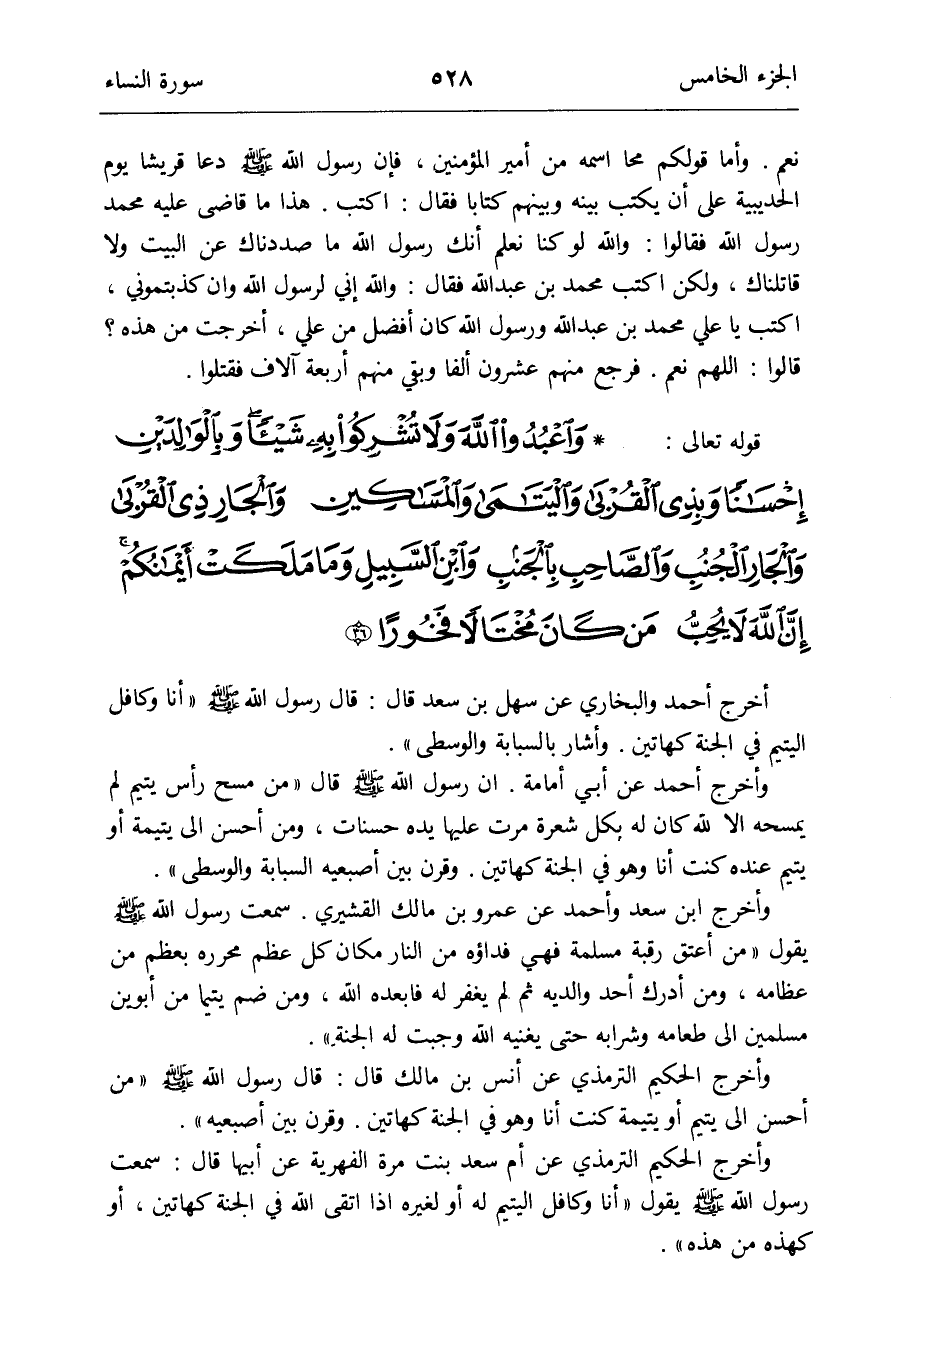 الجزء الخامس ٥٢٨ سورة النساء
نعم . وأما قولكم محا اسمه من أمير المؤمنين ، فإن رسول الله ﷺ دعا قريشا يوم
الحديبية على أن يكتب بينه وبينهم كتابا فقال : اكتب . هذا ما قاضى عليه محمد
رسول الله فقالوا : والله لو كنا نعلم أنك رسول الله ما صددناك عن البيت ولا
قاتلناك ، ولكن اكتب محمد بن عبدالله فقال : والله إني لرسول الله وان كذبتموني ،
اكتب يا علي محمد بن عبدالله ورسول الله كان أفضل من علي ، أخرجت من هذه ؟
قالوا : اللهم نعم . فرجع منهم عشرون ألفا وبقي منهم أربعة آلاف فقتلوا .
قوله تعالى : * وَٱعْبُدُوا۟ ٱللَّهَ وَلَا تُشْرِكُوا۟ بِهِۦ شَيْـًٔا ۖ وَبِٱلْوَٰلِدَيْنِ
إِحْسَـٰنًا وَبِذِى ٱلْقُرْبَىٰ وَٱلْيَتَـٰمَىٰ وَٱلْمَسَـٰكِينِ وَٱلْجَارِ ذِى ٱلْقُرْبَىٰ
وَٱلْجَارِ ٱلْجُنُبِ وَٱلصَّاحِبِ بِٱلْجَنۢبِ وَٱبْنِ ٱلسَّبِيلِ وَمَا مَلَكَتْ أَيْمَـٰنُكُمْ ۚ
إِنَّ ٱللَّهَ لَا يُحِبُّ مَن كَانَ مُخْتَالًا فَخُورًا ٣٦
أخرج أحمد والبخاري عن سهل بن سعد قال : قال رسول الله ﷺ « أنا وكافل
اليتيم في الجنة كهاتين . وأشار بالسبابة والوسطى » .
وأخرج أحمد عن أبي أمامة . ان رسول الله ﷺ قال « من مسح رأس يتيم لم
يمسحه الا لله كان له بكل شعرة مرت عليها يده حسنات ، ومن أحسن الى يتيمة أو
يتيم عنده كنت أنا وهو في الجنة كهاتين . وقرن بين أصبعيه السبابة والوسطى » .
وأخرج ابن سعد وأحمد عن عمرو بن مالك القشيري . سمعت رسول الله ﷺ
يقول « من أعتق رقبة مسلمة فهي فداؤه من النار مكان كل عظم محرره بعظم من
عظامه ، ومن أدرك أحد والديه ثم لم يغفر له فابعده الله ، ومن ضم يتيما من أبوين
مسلمين الى طعامه وشرابه حتى يغنيه الله وجبت له الجنة » .
وأخرج الحكيم الترمذي عن أنس بن مالك قال : قال رسول الله ﷺ « من
أحسن الى يتيم أو يتيمة كنت أنا وهو في الجنة كهاتين . وقرن بين أصبعيه » .
وأخرج الحكيم الترمذي عن أم سعد بنت مرة الفهرية عن أبيها قال : سمعت
رسول الله ﷺ يقول « أنا وكافل اليتيم له أو لغيره اذا اتقى الله في الجنة كهاتين ، أو
كهذه من هذه » .